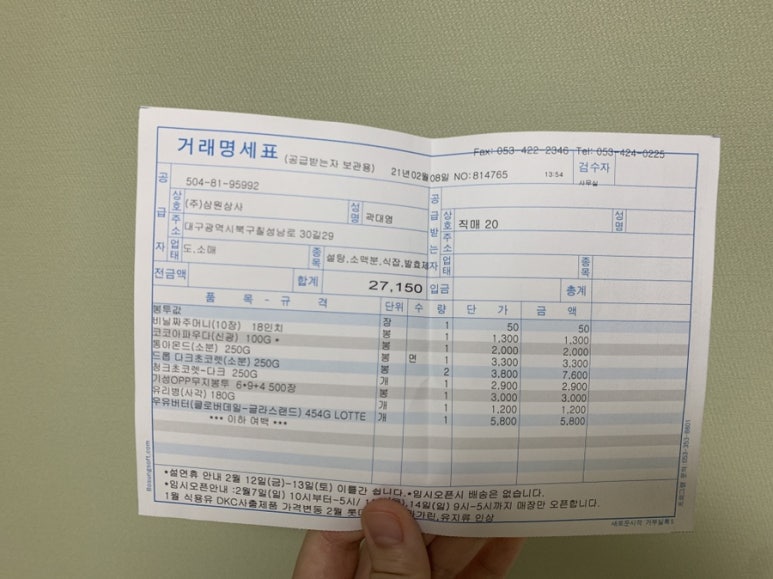 Fax: 053-422-2346 Tel: 053-424-0225
거래명세표 (공급받는자 보관용) 21년02월08일 NO:814765 13:54 검수자
사무실
공급자 504-81-95992 공급받는자
상호 (주)삼원상사 성명 곽대영 상호 직매 20 성명
주소 대구광역시북구칠성남로 30길29 주소
업태 도,소매 종목 설탕,소맥분,식잡,발효제 업태 종목
전금액 합계 27,150 입금 총계
품 목 - 규 격 단위 수 량 단 가 금 액
봉투값 장 1 50 50
비닐짜주머니(10장) 18인치 봉 1 1,300 1,300
코코아파우다(신광) 100G * 봉 1 2,000 2,000
통아몬드(소분) 250G 봉 면 1 3,300 3,300
드롭 다크초코렛(소분) 250G 봉 2 3,800 7,600
청크초코렛-다크 250G 개 1 2,900 2,900
가성OPP무지봉투 6*9+4 500장 봉 1 3,000 3,000
유리병(사각) 180G 개 1 1,200 1,200
우유버터(클로버데일-글라스랜드) 454G LOTTE 개 1 5,800 5,800
*** 이하 여백 ***
*설연휴 안내 2월 12일(금)-13일(토) 이틀간 쉽니다.*임시오픈시 배송은 없습니다.
*임시오픈안내 :2월7일(일) 10시부터-5시/ 14일(일) 9시-5시까지 매장만 오픈합니다.
1월 식용유 DKC사출제품 가격변동 2월 가린,유지류 인상
Bosungsoft.com
프로그램 문의 053-353-8801